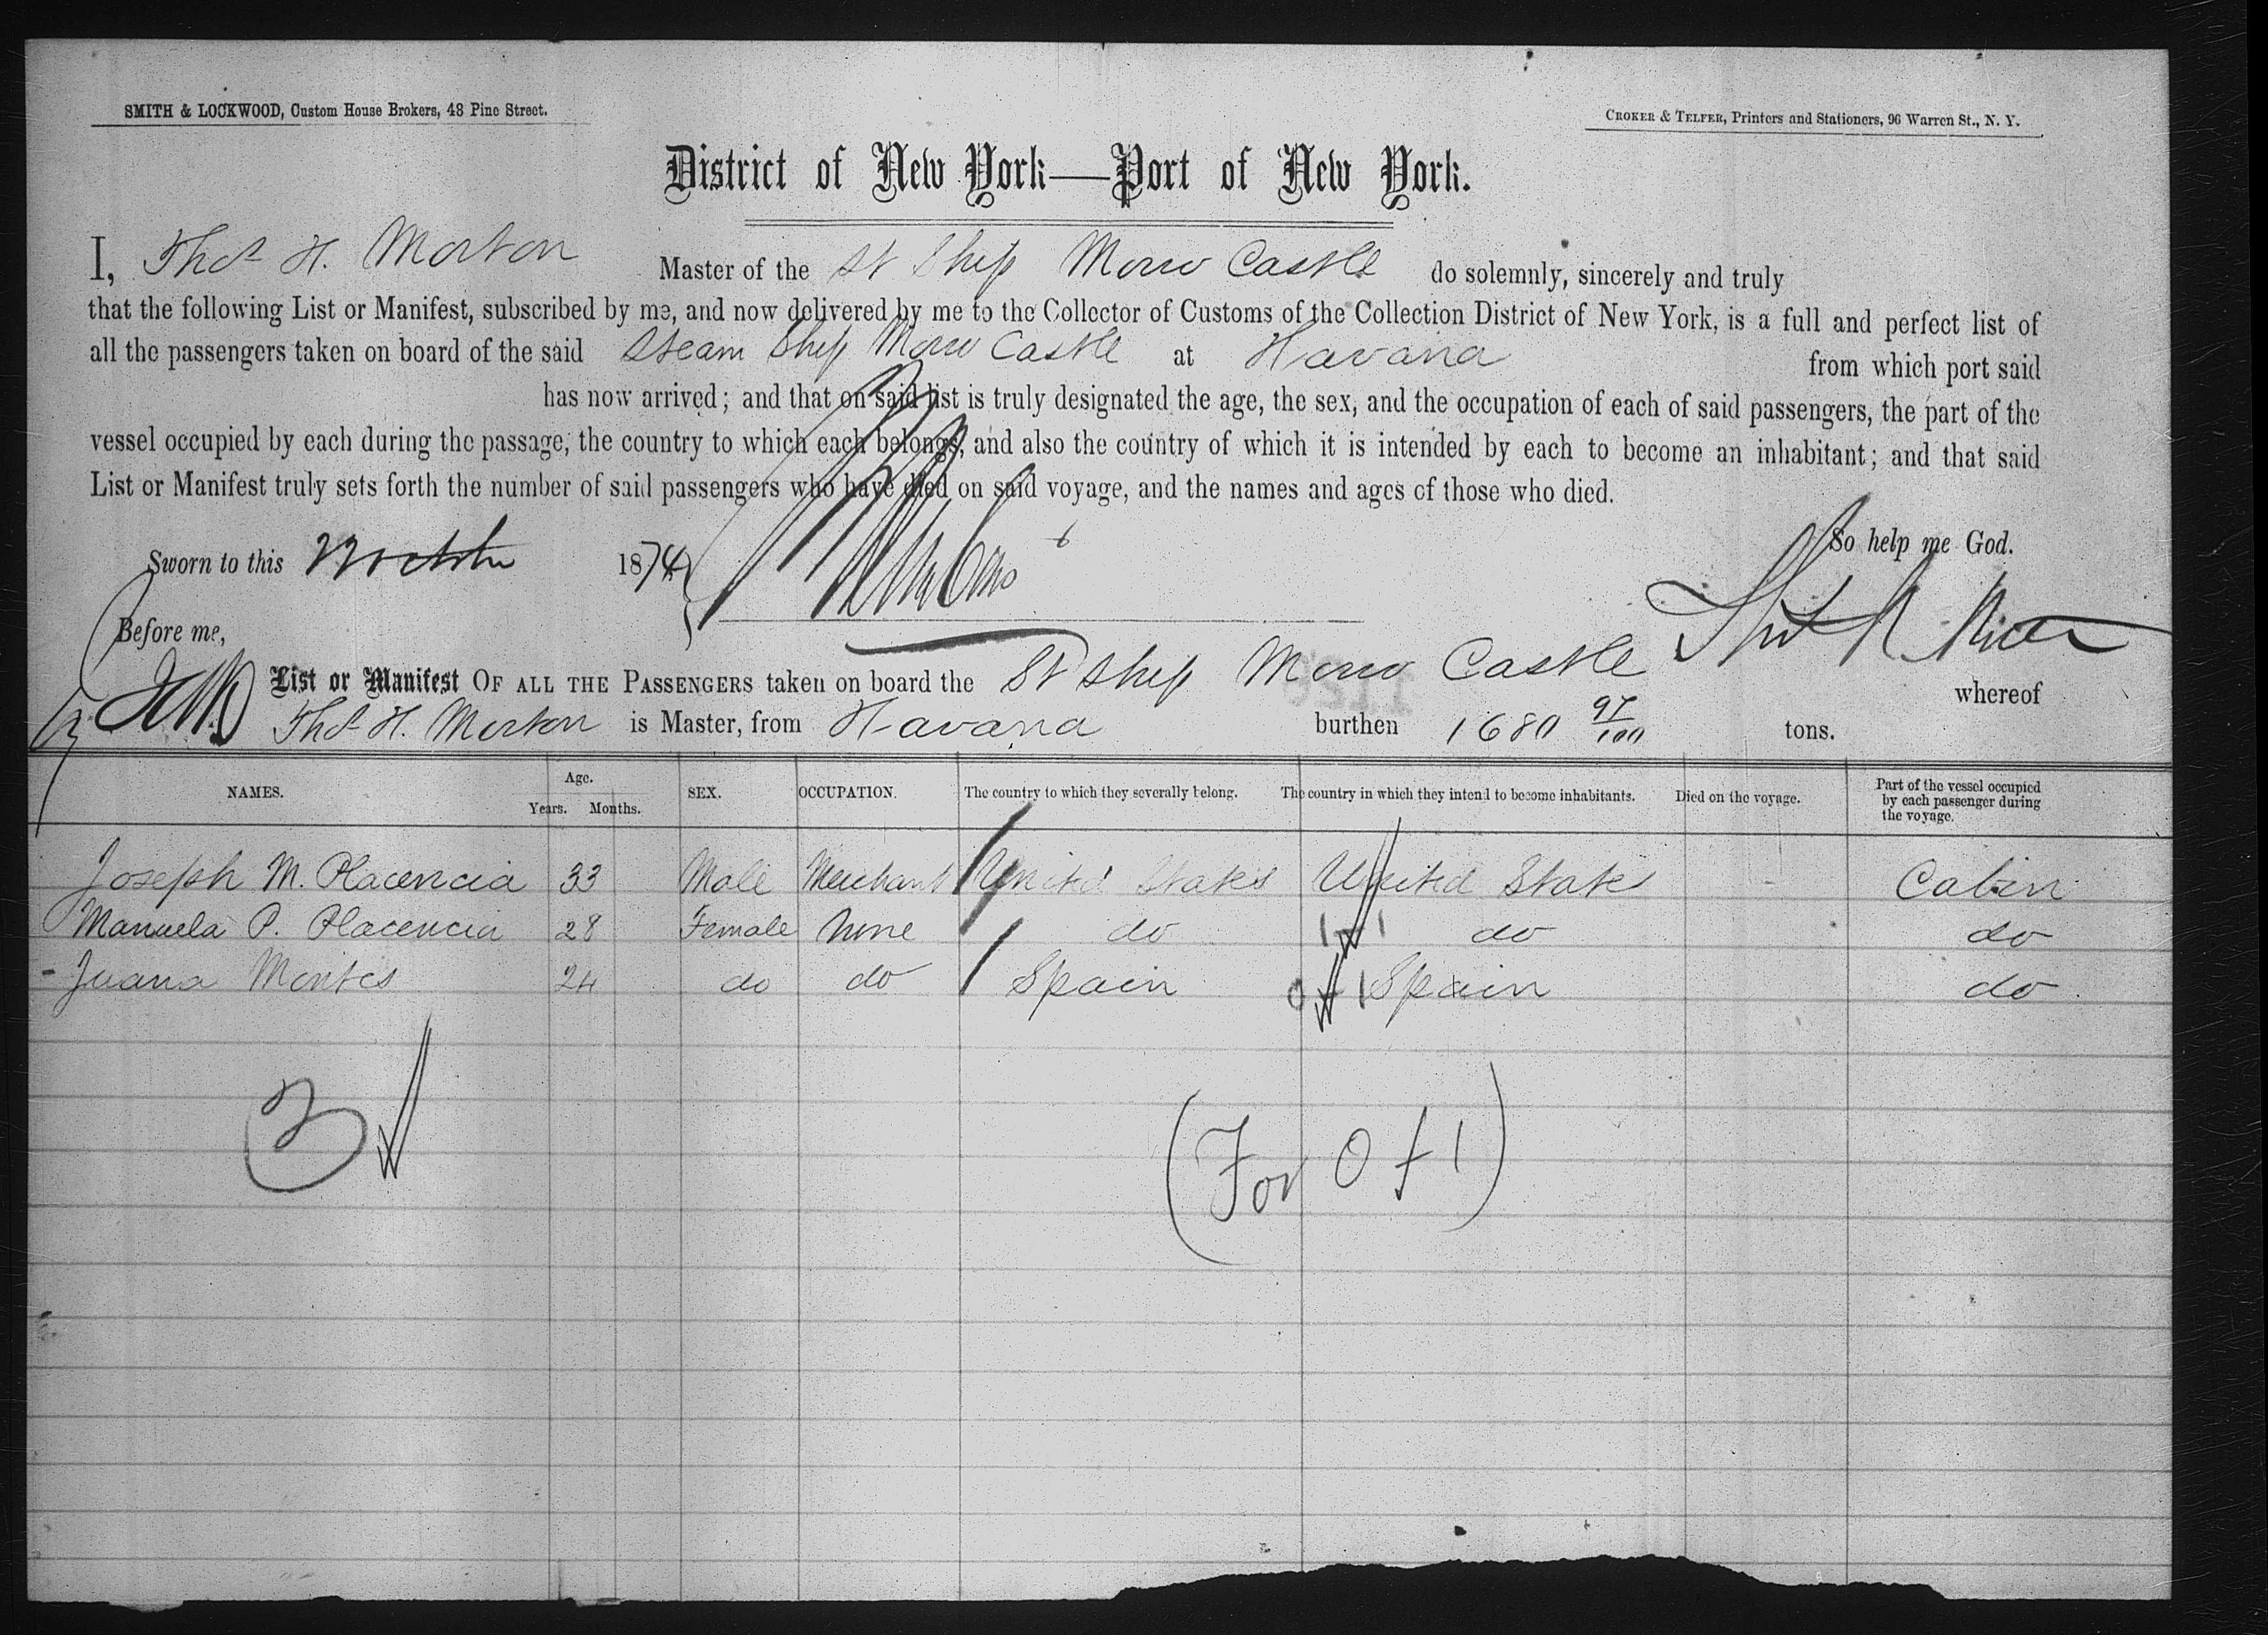 SMITH & LOCKWOOD, Custom House Brokers, 48 Pine Street.
CROKER & TELFER, Printers and Stationers, 96 Warren St., N. Y.
District of New York—Port of New York.
I, Thos H. Morton Master of the St Ship Morro Castle do solemnly, sincerely and truly
that the following List or Manifest, subscribed by me, and now delivered by me to the Collector of Customs of the Collection District of New York, is a full and perfect list of
all the passengers taken on board of the said Steam Ship Morro Castle at Havana from which port said
has now arrived; and that on said list is truly designated the age, the sex, and the occupation of each of said passengers, the part of the
vessel occupied by each during the passage, the country to which each belongs, and also the country of which it is intended by each to become an inhabitant; and that said
List or Manifest truly sets forth the number of said passengers who have died on said voyage, and the names and ages of those who died.
So help me God.
Sworn to this 1874
Before me,
List or Manifest OF ALL THE PASSENGERS taken on board the St Ship Morro Castle whereof
Thos H. Morton is Master, from Havana burthen 1680 97/100 tons.
NAMES. Age. Years. Months. SEX. OCCUPATION. The country to which they severally belong. The country in which they intend to become inhabitants. Died on the voyage. Part of the vessel occupied by each passenger during the voyage.
Joseph M. Placencia 33 Male Merchant United States United States Cabin
Manuela P. Placencia 28 Female None do 1+1 do do
Juana Montes 24 do do Spain 0+1 Spain do
3
(For 0+1)